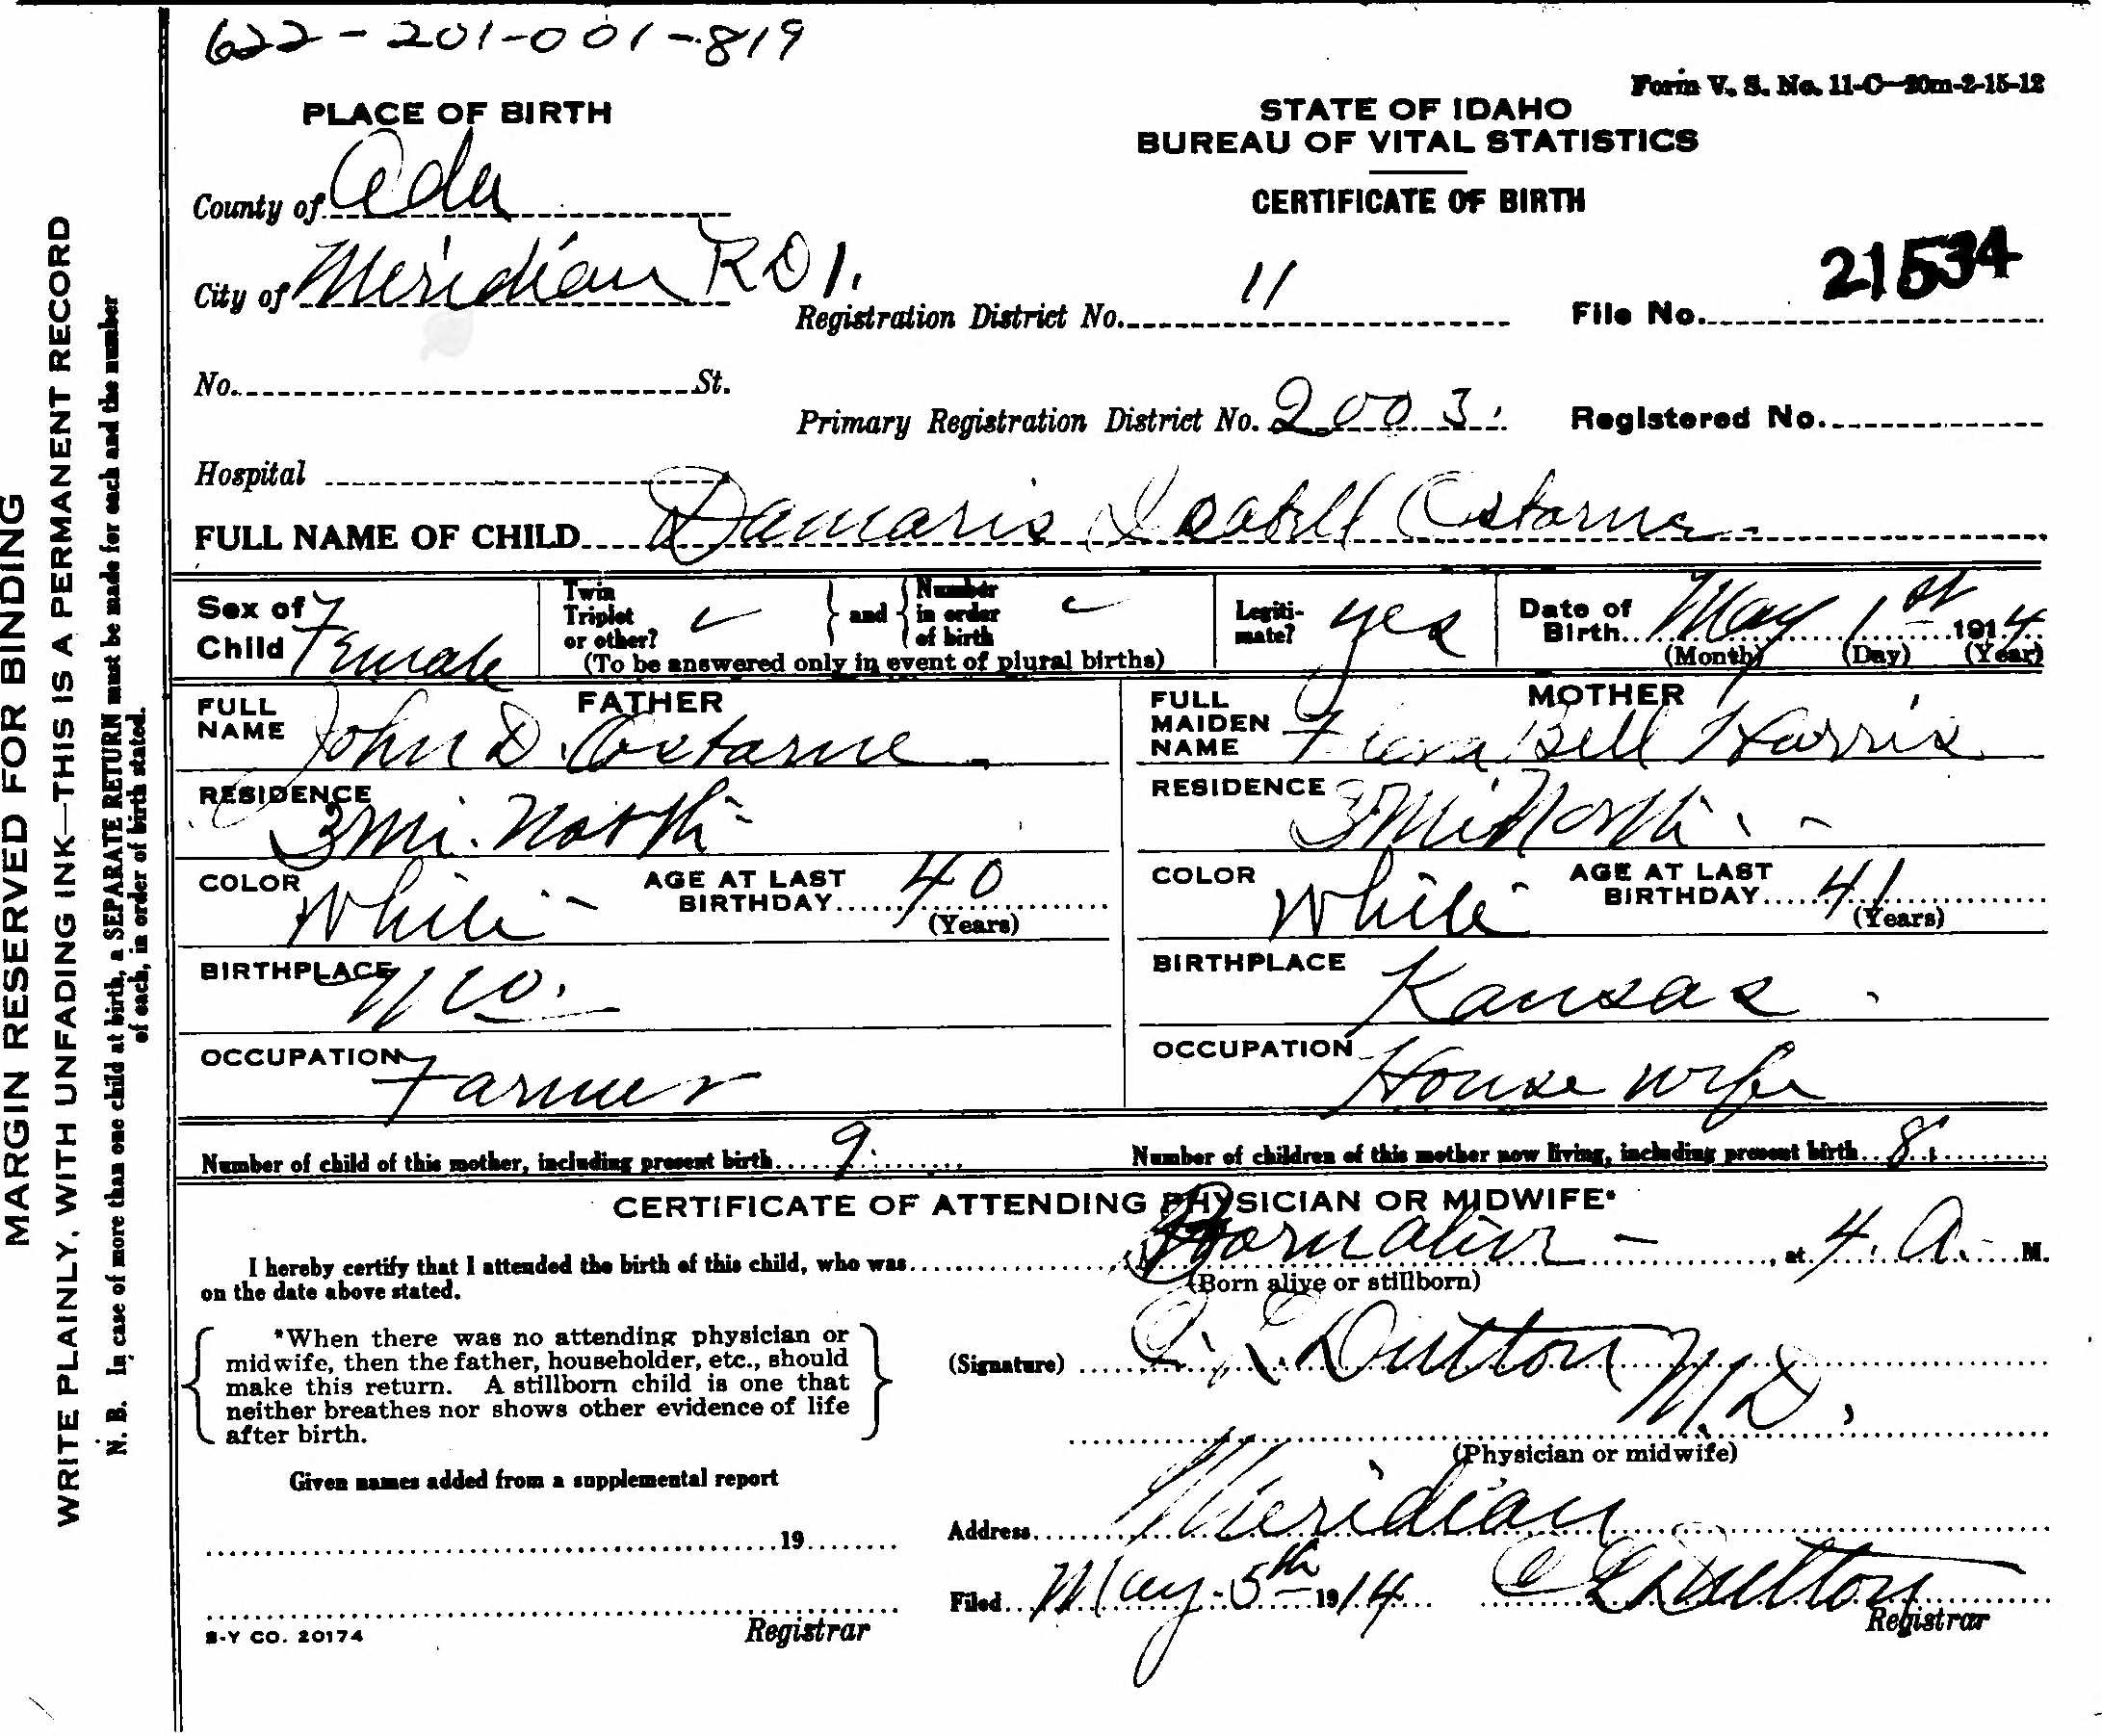 622-201-001-819
Form V. S. No. 11-C-20m-2-15-12
PLACE OF BIRTH
STATE OF IDAHO
BUREAU OF VITAL STATISTICS
CERTIFICATE OF BIRTH
County of Ada
City of Meridian RD 1.
Registration District No. 11
File No. 21534
No. St.
Primary Registration District No. 2003.
Registered No.
Hospital
FULL NAME OF CHILD Damaris Isabell Ostarne
Sex of Child Female
Twin Triplet or other? and Number in order of birth
(To be answered only in event of plural births)
Legitimate? yes
Date of Birth May 1st 1914
(Month) (Day) (Year)
FATHER
FULL NAME John D. Ostarne
RESIDENCE 3 Mi. North
COLOR White
AGE AT LAST BIRTHDAY 40
(Years)
BIRTHPLACE
OCCUPATION Farmer
MOTHER
FULL MAIDEN NAME Bell Harris
RESIDENCE 3 Mi North
COLOR White
AGE AT LAST BIRTHDAY 41
(Years)
BIRTHPLACE Kansas
OCCUPATION House wife
Number of child of this mother, including present birth 9
Number of children of this mother now living, including present birth 8
CERTIFICATE OF ATTENDING PHYSICIAN OR MIDWIFE*
I hereby certify that I attended the birth of this child, who was Born alive, at 4. A. M.
(Born alive or stillborn)
on the date above stated.
*When there was no attending physician or
midwife, then the father, householder, etc., should
make this return. A stillborn child is one that
neither breathes nor shows other evidence of life
after birth.
(Signature) Dutton M.D.
(Physician or midwife)
Given names added from a supplemental report
19
Address Meridian
Filed May 5th 1914 Dutton
Registrar
Registrar
S-Y CO. 20174
MARGIN RESERVED FOR BINDING
WRITE PLAINLY, WITH UNFADING INK—THIS IS A PERMANENT RECORD
N. B. In case of more than one child at birth, a SEPARATE RETURN must be made for each and the number
of each, in order of birth stated.